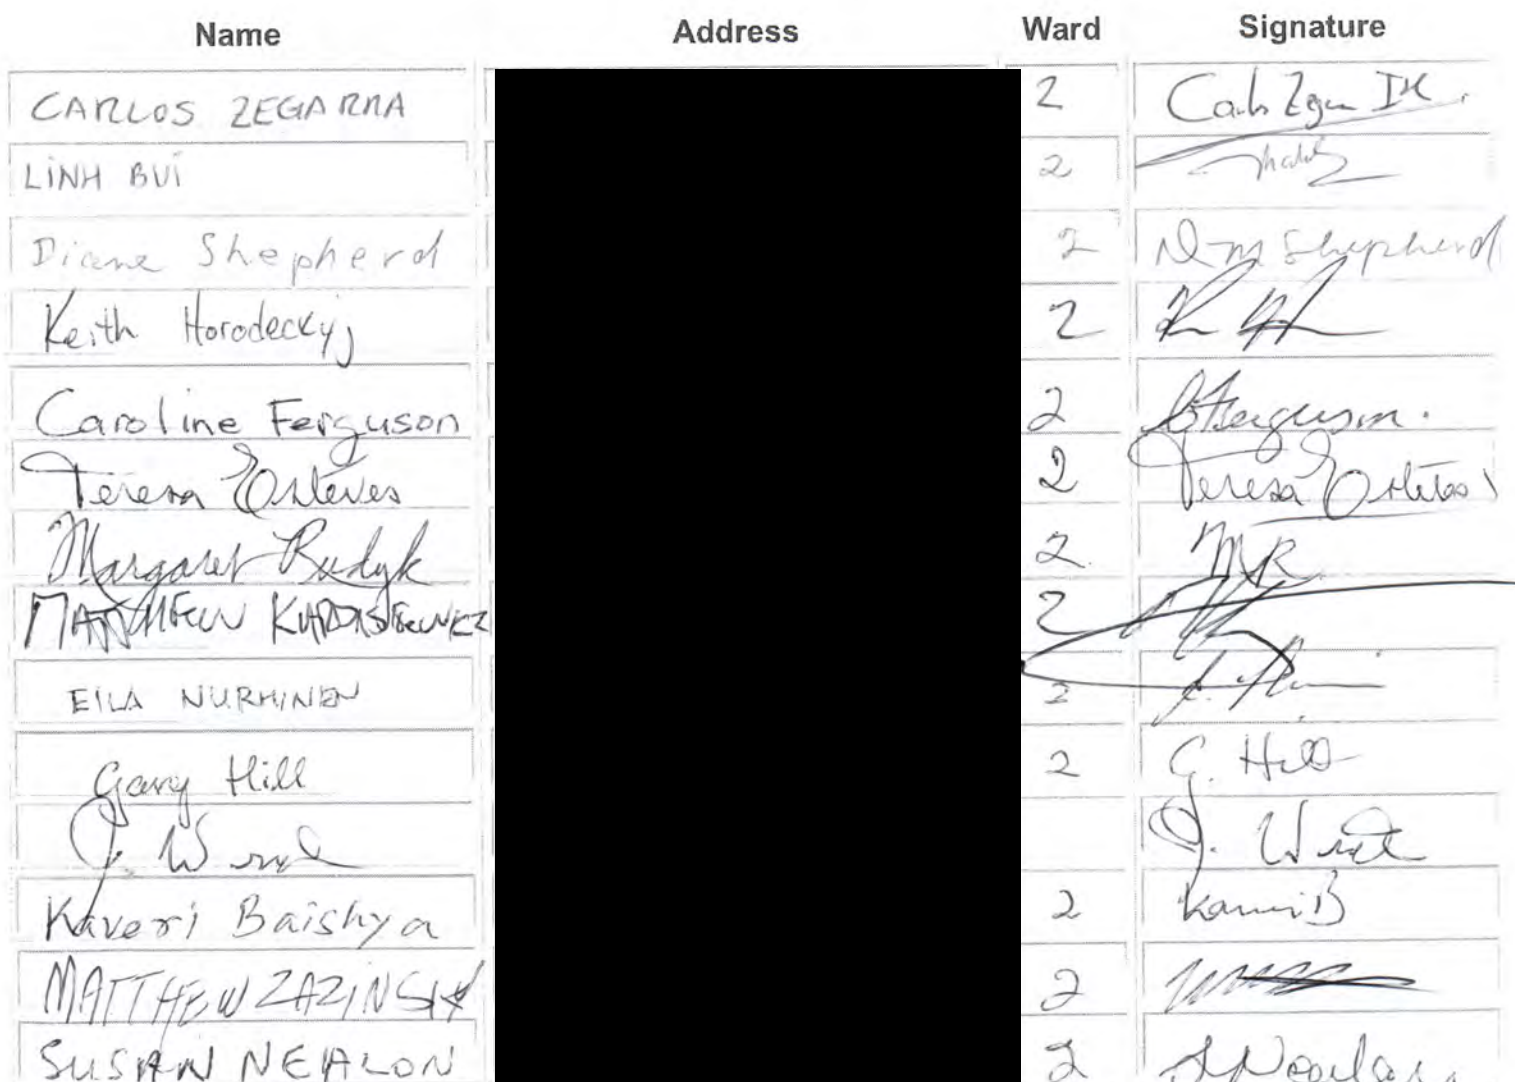 Name Address Ward Signature
CARLOS ZEGARRA 2
LINH BUI 2
Diane Shepherd 2 D m Shepherd
Keith Horodeckyj 2
Caroline Ferguson 2 CFerguson.
Teresa Esteves 2 Teresa
Margaret Rudyk 2. MR
MATTHEW 2
EILA NURMINEN 2
Gary Hill 2 G. Hill
J. J.
Kaveri Baishya 2 Kaveri B
MATTHEW ZAZINSKY 2
SUSAN NEALON 2